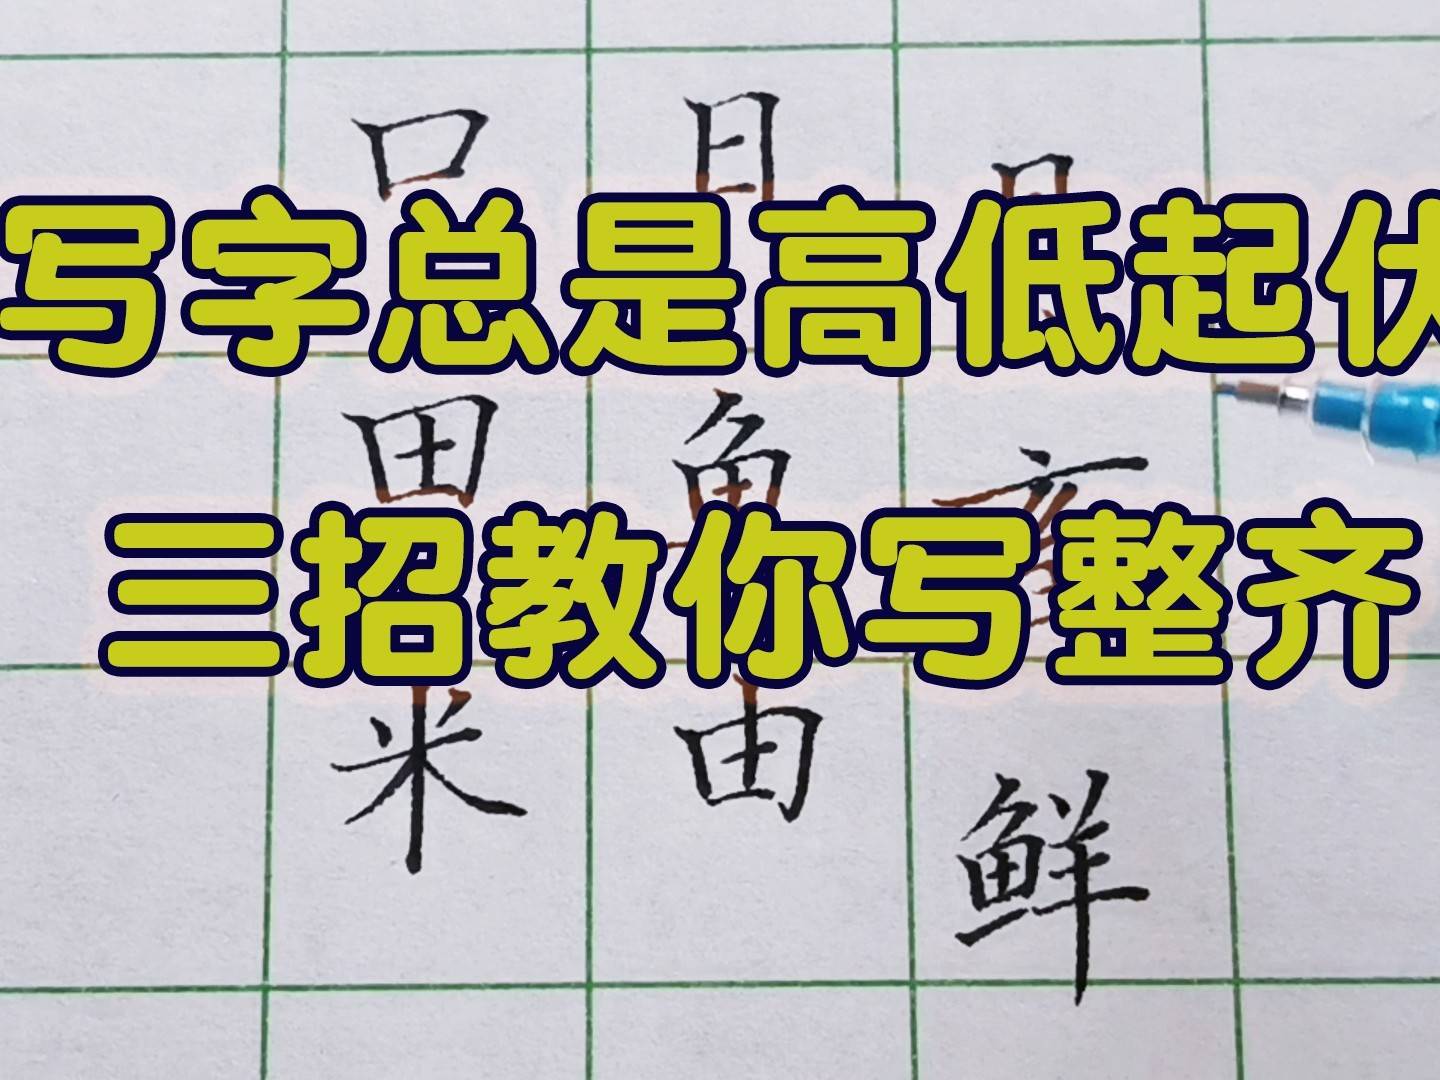 口 日
写字总是高低起伏
田 鱼 亥
三招教你写整齐
米 由
鲜